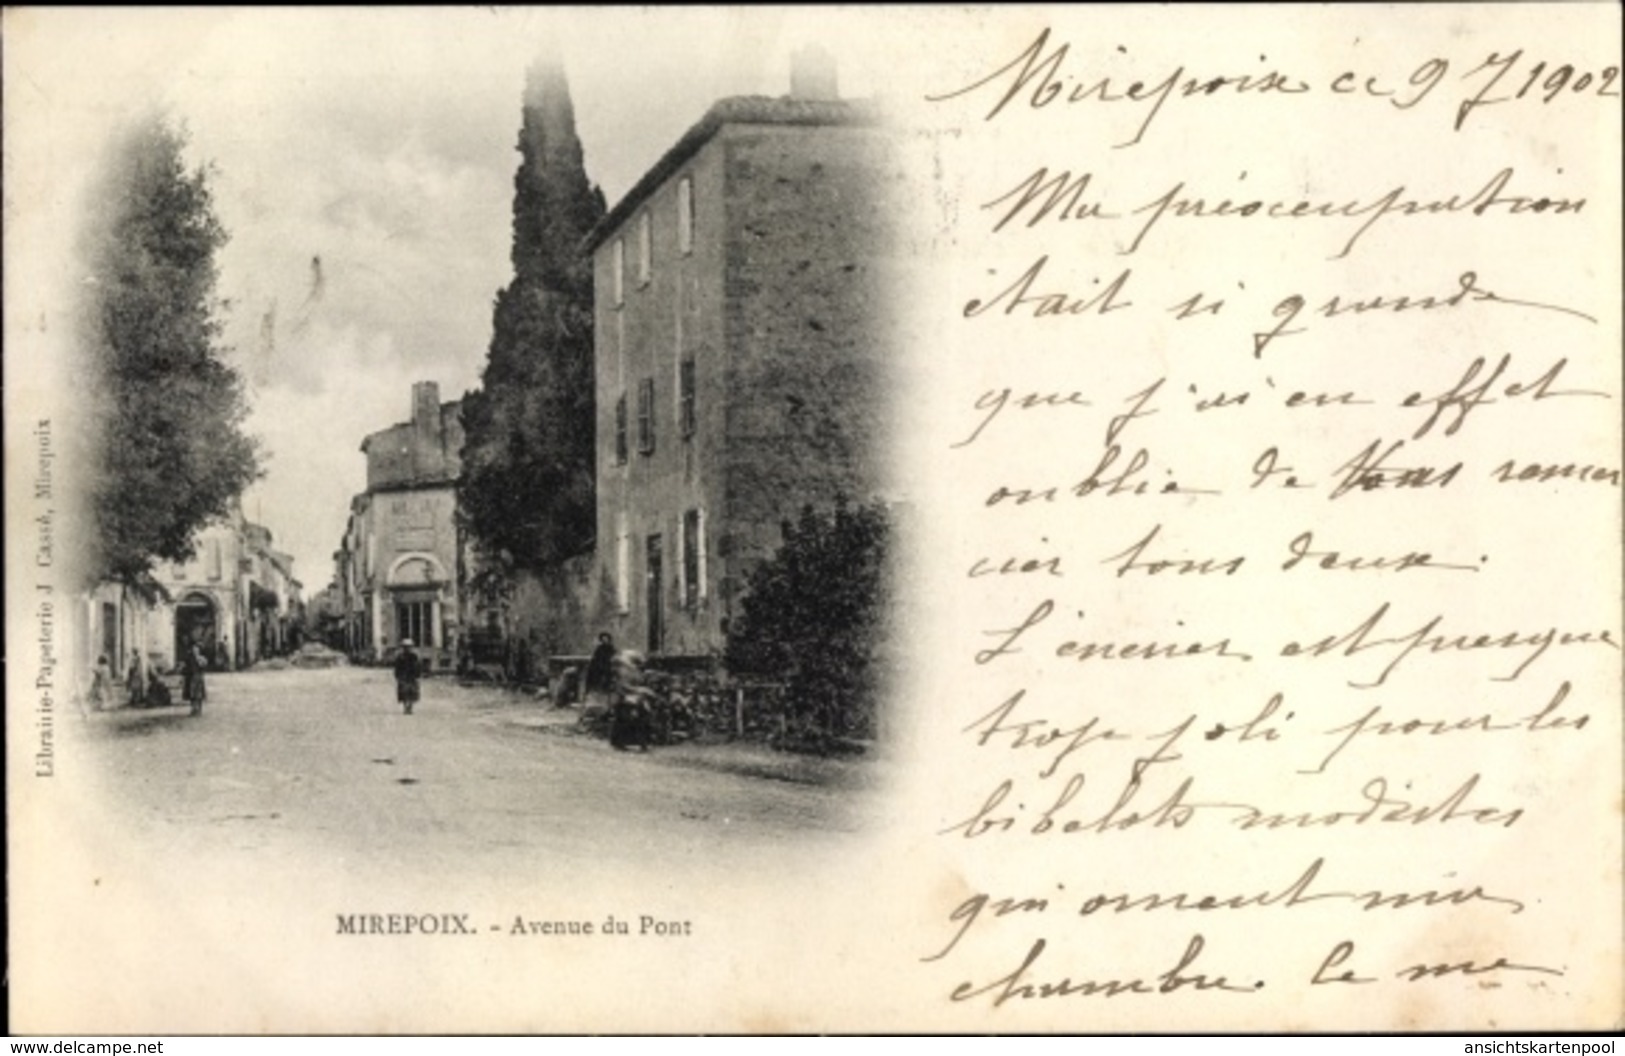 Mirepoix ce 9 7 1902
Ma préocenpation
était si grande
que j'ai en effet
oublié de Vous remer
cier tous deux.
L'encrier est presque
trop joli pour les
bibelots modestes
qui ornent ma
chambre. Ce me
Librairie-Papeterie J Cassé, Mirepoix
MIREPOIX. - Avenue du Pont
www.delcampe.net
ansichtskartenpool